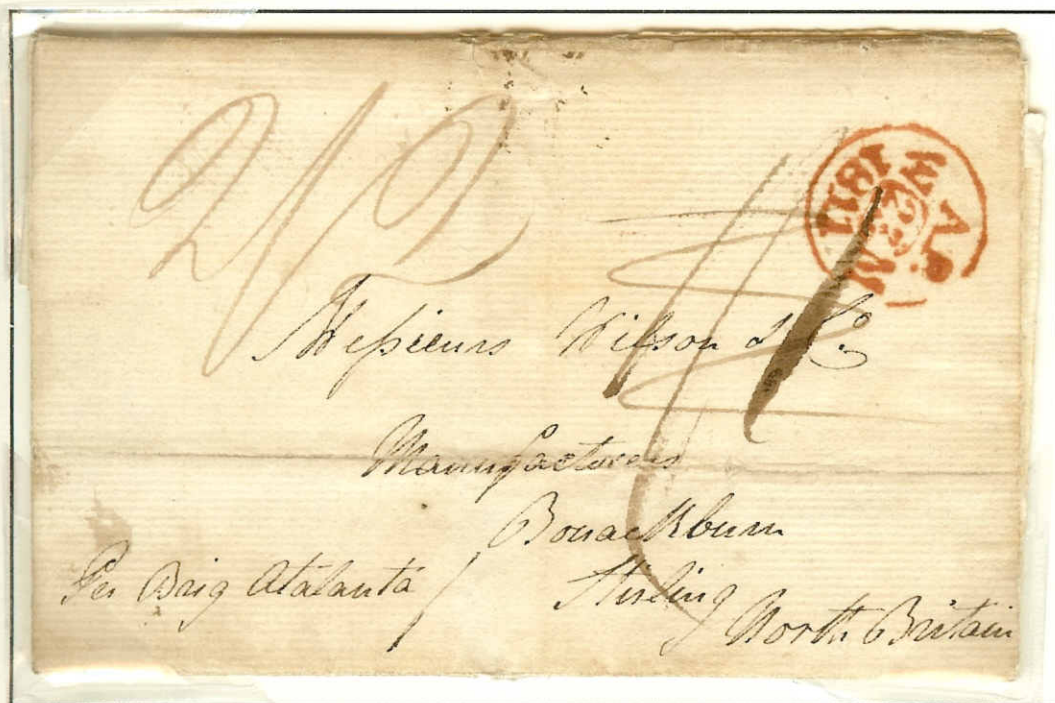 2/2
Messieurs Wilson & Co.
Manufacturers
Bonackburn
Stirling
North Britain
Per Brig Atalanta
1811